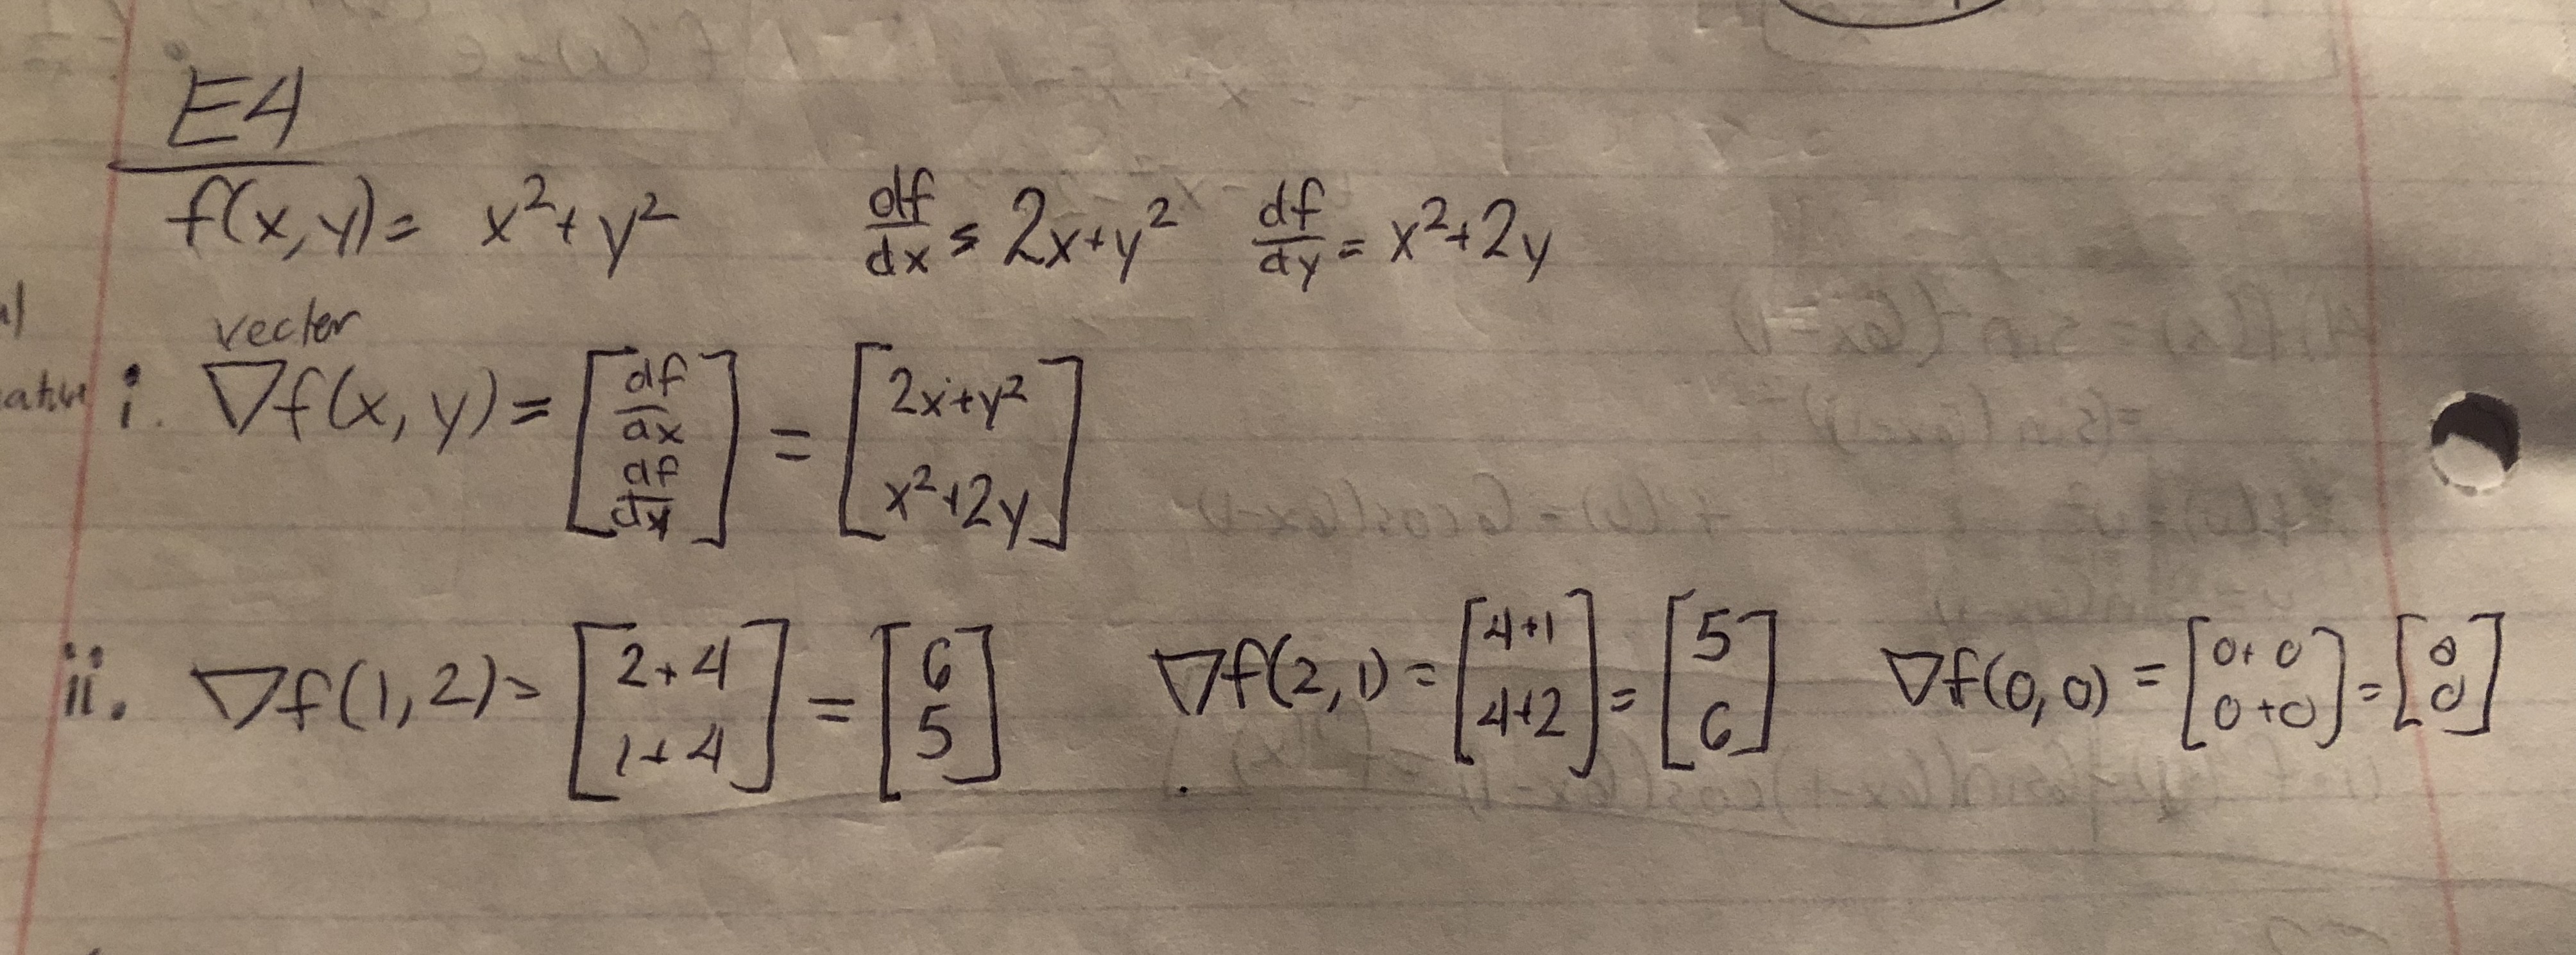 E4
f(x,y)= x²+y² df/dx = 2x+y² df/dy = x²+2y
vector
i. ∇f(x,y)= [df/dx df/dy] = [2x+y² x²+2y]
ii. ∇f(1,2)= [2+4 1+4] = [6 5] ∇f(2,1)= [4+1 4+2] = [5 6] ∇f(0,0) = [0+0 0+0] = [0 0]